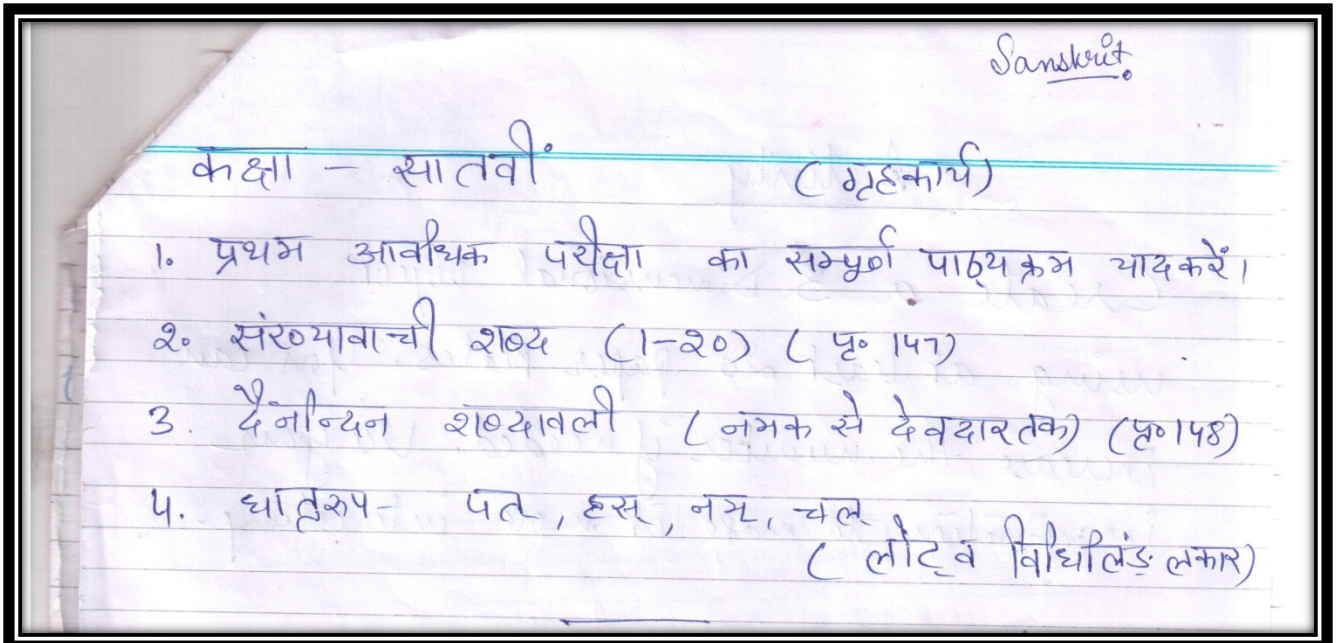 Sanskrit
कक्षा - सातवीं (गृहकार्य)
1. प्रथम आवधिक परीक्षा का सम्पूर्ण पाठ्यक्रम याद करें।
२. संख्यावाची शब्द (1-२०) ( पृ० 147)
3. दैनन्दिन शब्दावली ( नमक से देवदार तक) (पृ० 148)
4. धातुरुप - पत्, हस्, नम्, चल्
( लोट् व विधिलिंङ् लकार)